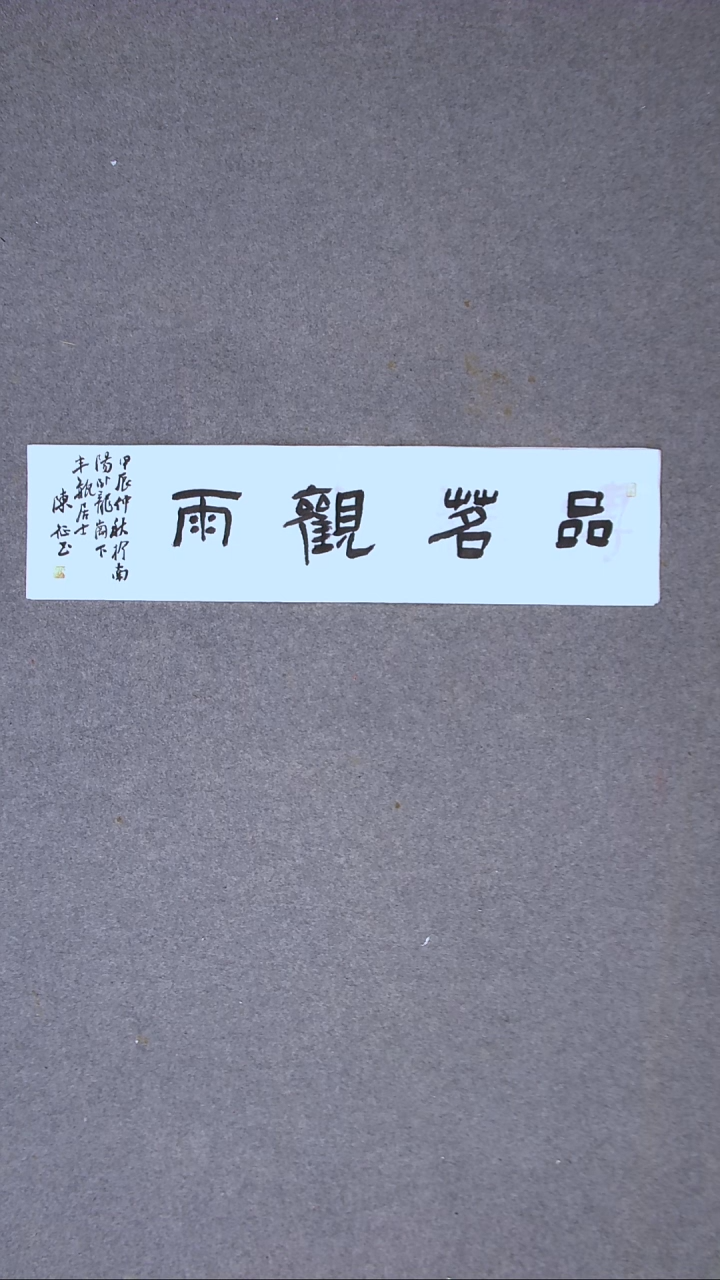 品茗觀雨
甲辰仲秋於南
陽卧龍崗下
半瓢居士
陳征玉